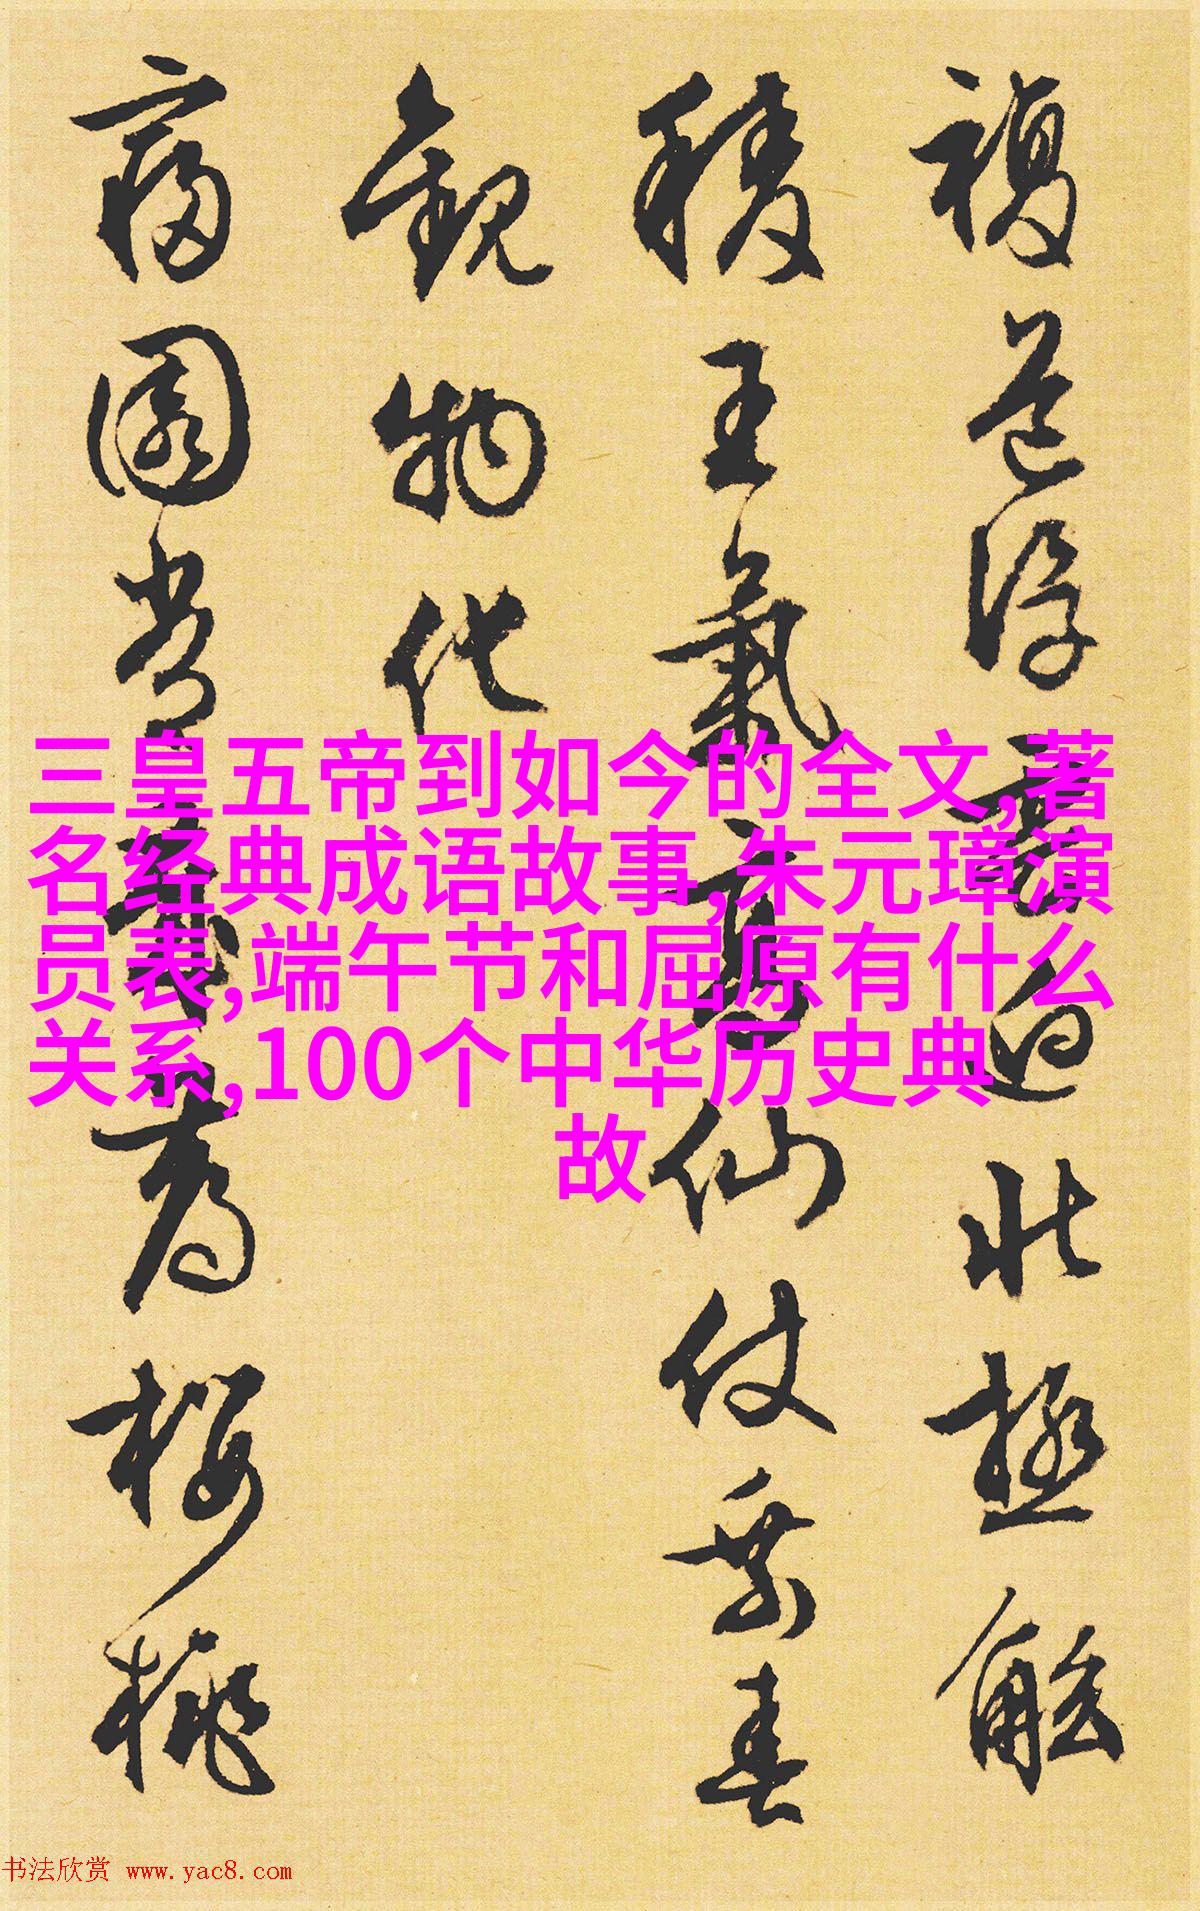 複道浮雲迥北極觚
稜王氣高仙仗乘春
觀物化
寢園常歲薦櫻桃
三皇五帝到如今的全文,著
名经典成语故事,朱元璋演
员表,端午节和屈原有什么
关系,100个中华历史典
故
书法欣赏 www.yac8.com